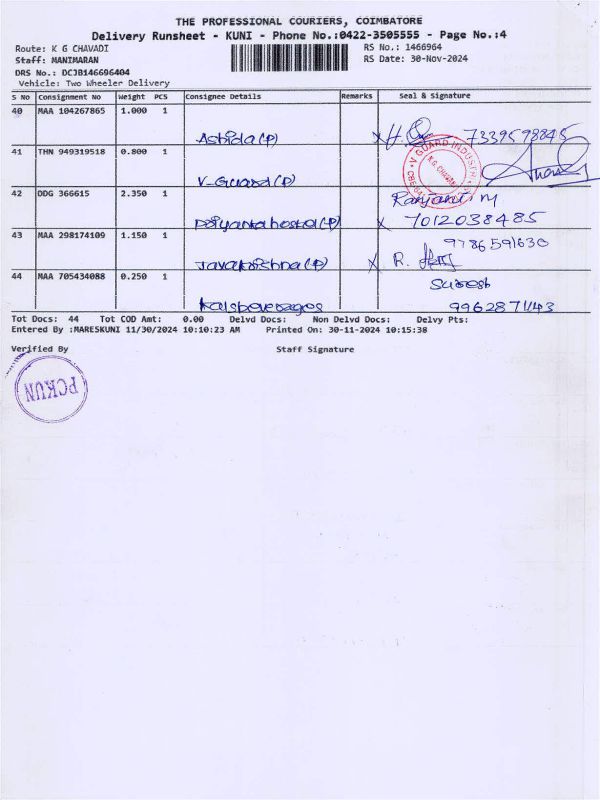 THE PROFESSIONAL COURIERS, COIMBATORE
Delivery Runsheet - KUNI - Phone No.:0422-3505555 - Page No.:4
Route: K G CHAVADI
RS No.: 1466964
Staff: MANIMARAN
RS Date: 30-Nov-2024
DRS No.: DCJB146696404
Vehicle: Two Wheeler Delivery
S No Consignment No Weight PCS Consignee Details Remarks Seal & Signature
40 MAA 104267865 1.000 1
Ashida (P) 7339598845
41 THN 949319518 0.800 1
V-Guard (P)
V GUARD INDUSTRI
K G CHAVADI
42 ODG 366615 2.350 1
Ranjani. M
Priyanka hostal (P) x 7012038485
43 MAA 298174109 1.150 1
9786591630
Jayakrishna (P) x R.
44 MAA 705434088 0.250 1
Suresh
Kalsbeverages 9962871143
Tot Docs: 44 Tot COD Amt: 0.00 Delvd Docs: Non Delvd Docs: Delvy Pts:
Entered By :MARESKUNI 11/30/2024 10:10:23 AM Printed On: 30-11-2024 10:15:38
Verified By Staff Signature
PCKUN